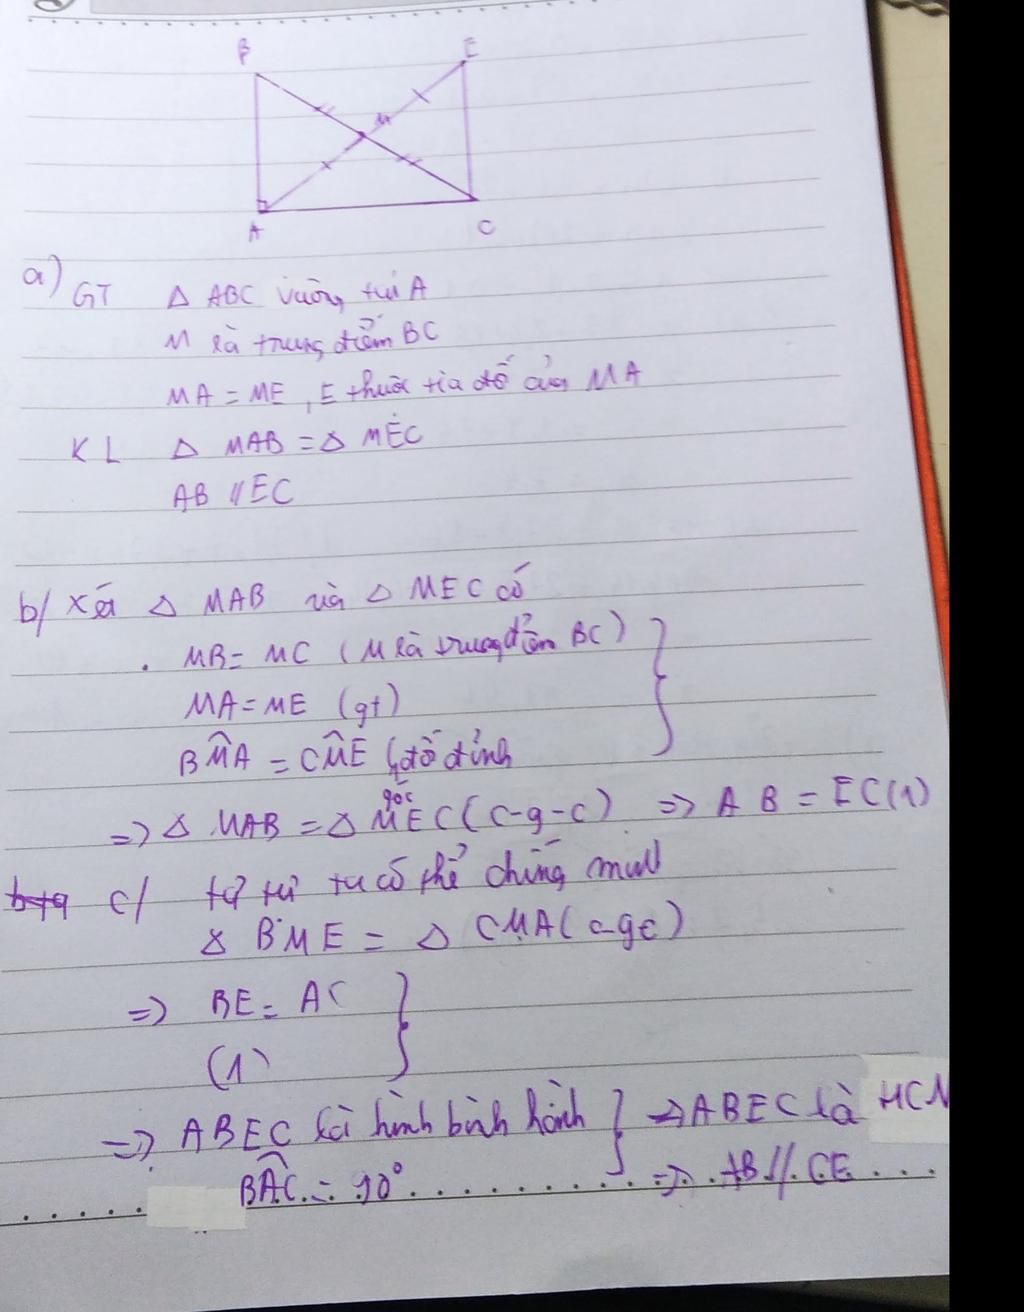 B E
M
A C
a) GT Δ ABC vuông tại A
M là trung điểm BC
MA = ME, E thuộc tia đố của MA
KL Δ MAB = Δ MEC
AB // EC
b/ Xét Δ MAB và Δ MEC có
. MB = MC (M là trung điểm BC) }
MA = ME (gt)
BM̂A = CM̂E (đố đỉnh
góc
=> Δ MAB = Δ MEC (c-g-c) => AB = EC (1)
c/ tự có thể chứng
Δ BME = Δ CMA (c-gc)
=> BE = AC }
(1)
=> ABEC là hình bình hành } => ABEC là HCN
BÂC = 90° => AB // CE